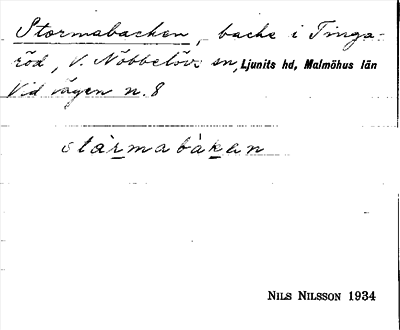 Stormabacken, backe i Tinga-
röd, V. Nöbbelöv sn, Ljunits hd, Malmöhus län
Vid vägen n. 8
stårmabákan
NILS NILSSON 1934